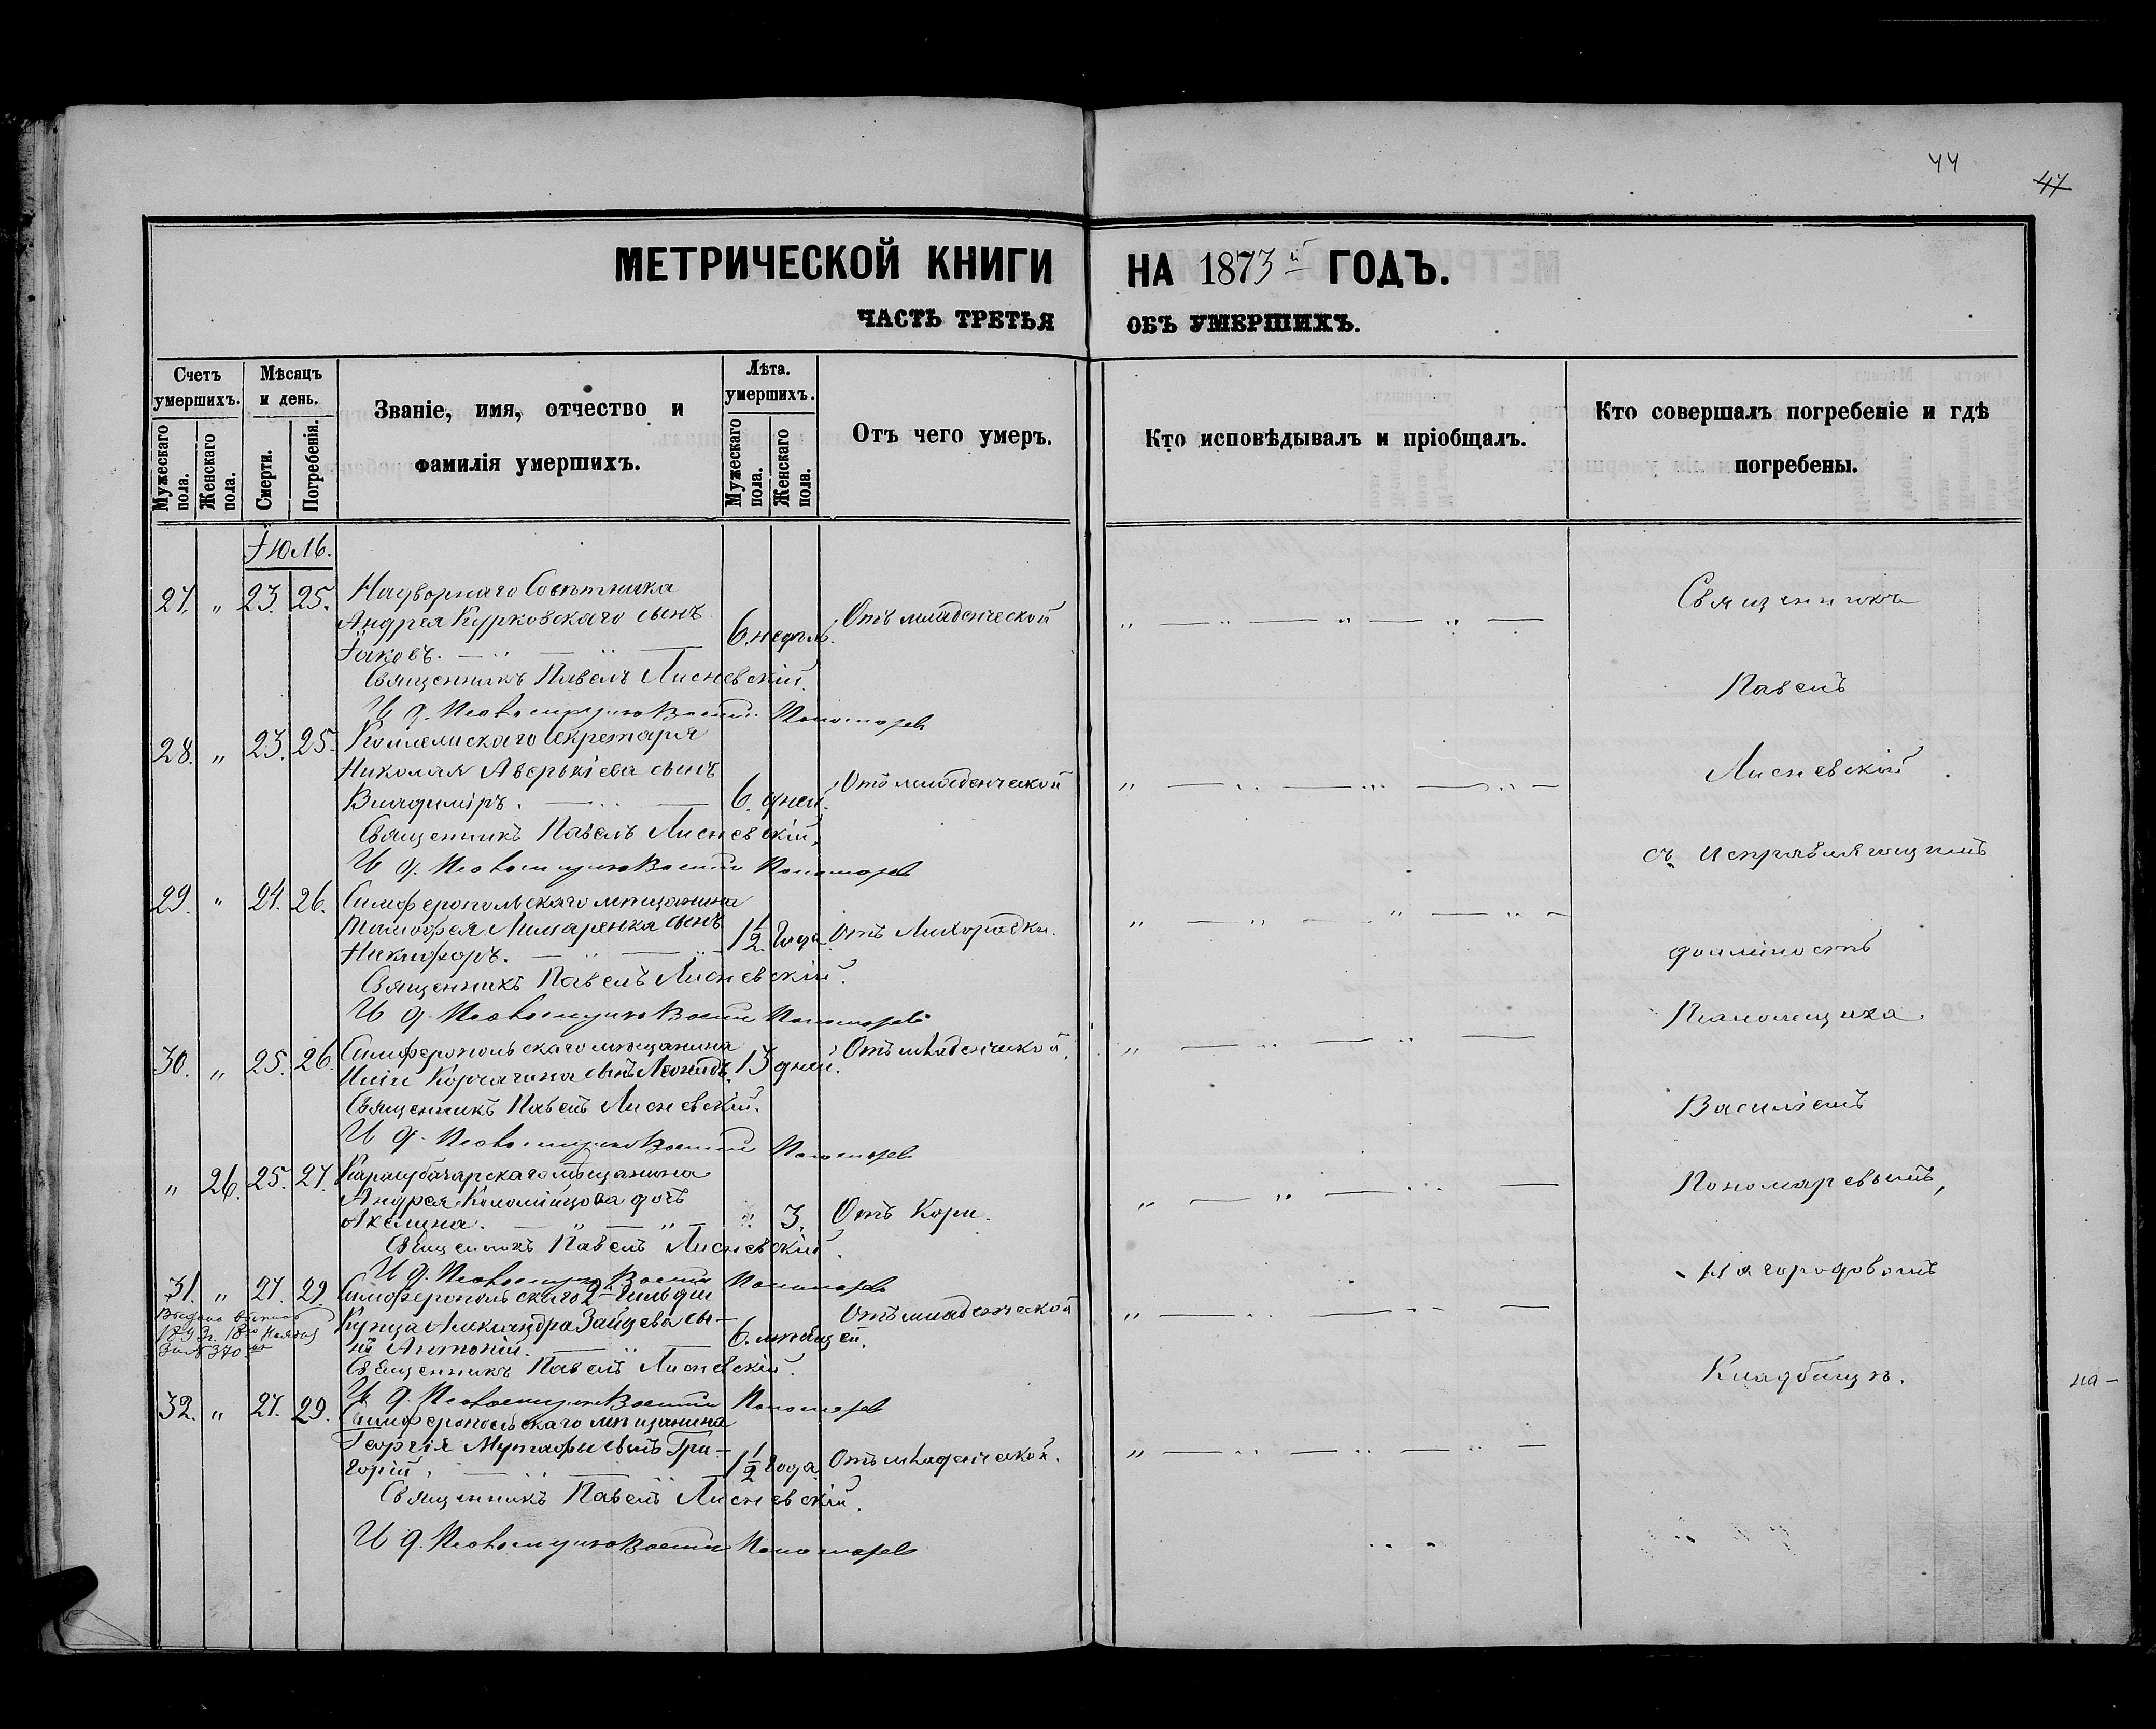 44
47
МЕТРИЧЕСКОЙ КНИГИ НА 1873й ГОДЪ.
ЧАСТЬ ТРЕТЬЯ ОБЪ УМЕРШИХЪ.
Счетъ умершихъ.
Мужескаго пола.
Женскаго пола.
Мѣсяцъ и день.
Смерти.
Погребенія.
Званіе, имя, отчество и
фамилія умершихъ.
Лѣта. умершихъ.
Мужескаго пола.
Женскаго пола.
Отъ чего умеръ.
Кто исповѣдывалъ и пріобщалъ.
Кто совершалъ погребеніе и гдѣ
погребены.
Іюль.
27. " 23. 25. Надворнаго Совѣтника
Андрея Курковскаго сынъ
Іаковъ. 6. недѣль. Отъ младенческой
Священникъ Павелъ Лисневскій.
И д. Псаломщика Пономарев
28. " 23. 25. Коллежскаго Секретаря
Николая Аверькіева сынъ
Владиміръ. 6. дней. Отъ младенческой
Священникъ Павелъ Лисневскій.
И д. Псаломщика Пономарев
29. " 24. 26. Симферопольскаго мѣщанина
Тимофея сынъ
Никифоръ. 1 1/2 года Отъ Лихорадки.
Священникъ Павелъ Лисневскій.
И д. Псаломщика Пономарев
30. " 25. 26. Симферопольскаго мѣщанина
Иліи Корчагина сынъ Леонидъ. 13 дней. Отъ младенческой.
Священникъ Павелъ Лисневскій.
И д. Псаломщика Пономарев
" 26. 25. 27. Карасубазарскаго мѣщанина
Андрея Коломійцова дочь
Акилина. " 3. Отъ Кори.
Священникъ Павелъ Лисневскій.
И д. Псаломщика Пономарев
31. " 27. 29. Симферопольскаго 2й Гильдіи
Купца Александра Зайцева сы-
нъ Антоній. 6. мѣсяцей. Отъ младенческой
Выдана выпись
1893г. 18го
За № 370
Священникъ Павелъ Лисневскій.
И д. Псаломщика Пономарев
32. " 27. 29. Симферопольскаго мѣщанина
Георгія сынъ Гри-
горій. 1 1/2 года Отъ младенческой.
Священникъ Павелъ Лисневскій.
И д. Псаломщика Пономарев
Священникъ
Павелъ
Лисневскій
съ исправляющимъ
должность
Псаломщика
Василіемъ
Пономаревымъ,
На городовомъ
Кладбищѣ.
на-